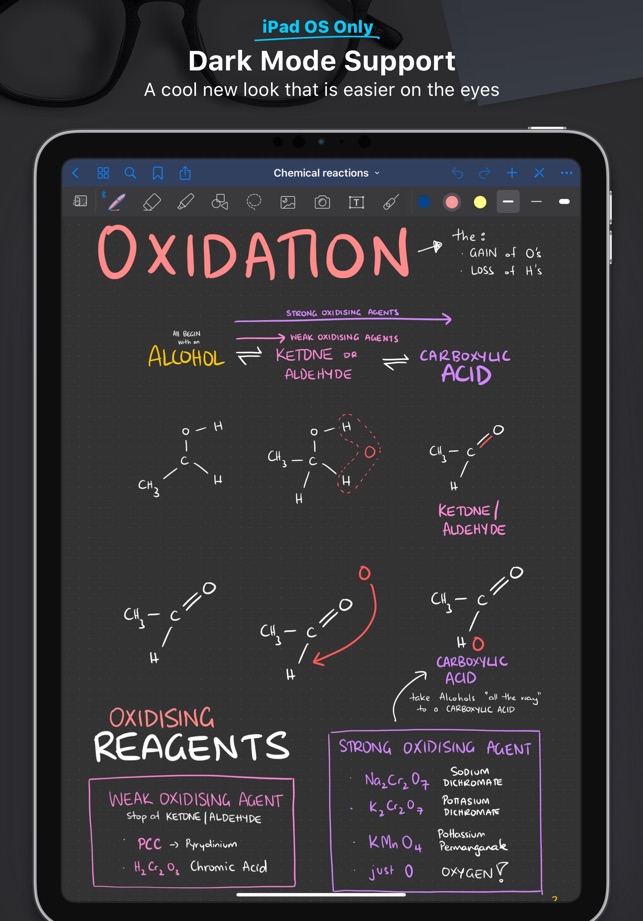 iPad OS Only
Dark Mode Support
A cool new look that is easier on the eyes
Chemical reactions
T
OXIDATION
the:
· GAIN of O's
· LOSS of H's
STRONG OXIDISING AGENTS
WEAK OXIDISING AGENTS
All BEGIN
with an
ALCOHOL ⇌ KETONE OR ⇌ CARBOXYLIC
ALDEHYDE ACID
O — H
C
CH3 H
O — H
CH3 — C O
H H
O
CH3 — C
H
KETONE/
ALDEHYDE
O
CH3 — C
H
O
O
CH3 — C
H
O
CH3 — C
H O
CARBOXYLIC
ACID
take Alcohols "all the way"
to a CARBOXYLIC ACID
OXIDISING
REAGENTS
WEAK OXIDISING AGENT
Stop at KETONE/ALDEHYDE
· PCC → Pyrydinium
· H2Cr2O3 Chromic Acid
STRONG OXIDISING AGENT
· Na2Cr2O7 SODIUM
DICHROMATE
· K2Cr2O7 POTTASIUM
DICHROMATE
· KMnO4 Pottassium
Permanganate
· just O OXYGEN!